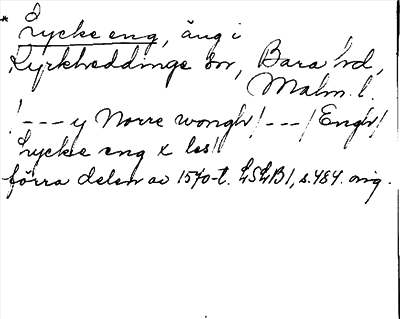 * Lycke eng, äng i
Kyrkheddinge sn, Bara hd,
Malm. l.
/--- y Norre wongh/---/Engh/
Lycke eng x les/
förra delen av 1570-t. LSLB1, s.484. orig.